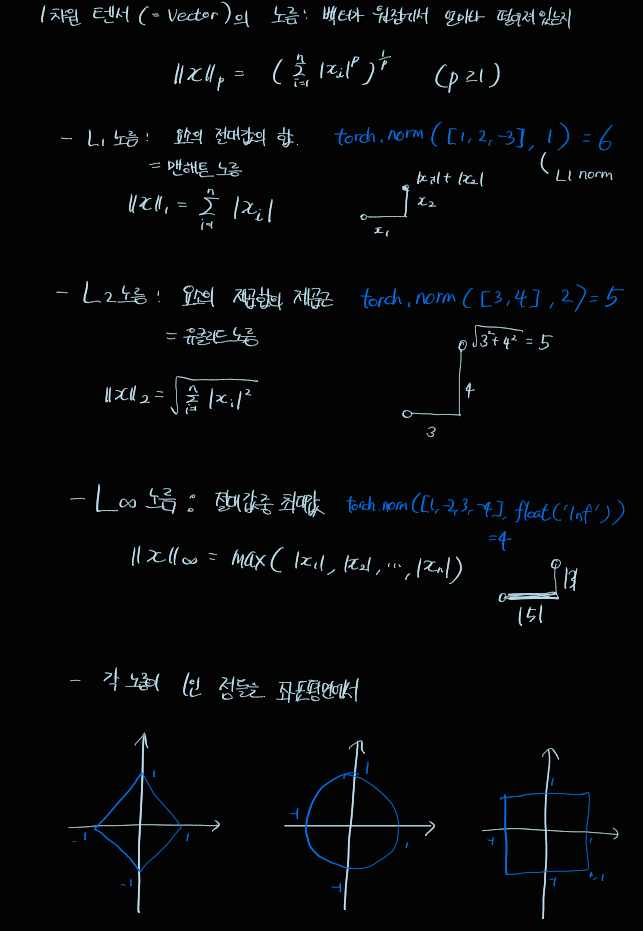 1차원 텐서(= Vector)의 노름: 벡터가 원점에서 얼마나 떨어져있는지
||x||p = (Σ_{i=1}^{n} |xᵢ|^p)^{1/p} (p≥1)
- L1 노름: 요소의 절대값의 합. torch.norm([1,2,-3], 1) = 6
= 맨해튼 노름
L1 norm
||x||₁ = Σ_{i=1}^{n} |xᵢ|
|x₁| + |x₂|
x₂
x₁
- L2 노름: 요소의 제곱합의 제곱근 torch.norm([3,4], 2) = 5
= 유클리드 노름
√3²+4² = 5
||x||₂ = √Σ_{i=1}^{n} |xᵢ|²
4
3
- L∞ 노름: 절대값중 최대값 torch.norm([1,-2,3,-4], float('Inf'))
=4
||x||∞ = max(|x₁|, |x₂|, ..., |xn|)
|3|
|5|
- 각 노름이 1인 점들을 좌표평면에서
1 1 1
-1 1 -1 1 -1 1
-1 -1 -1 -1